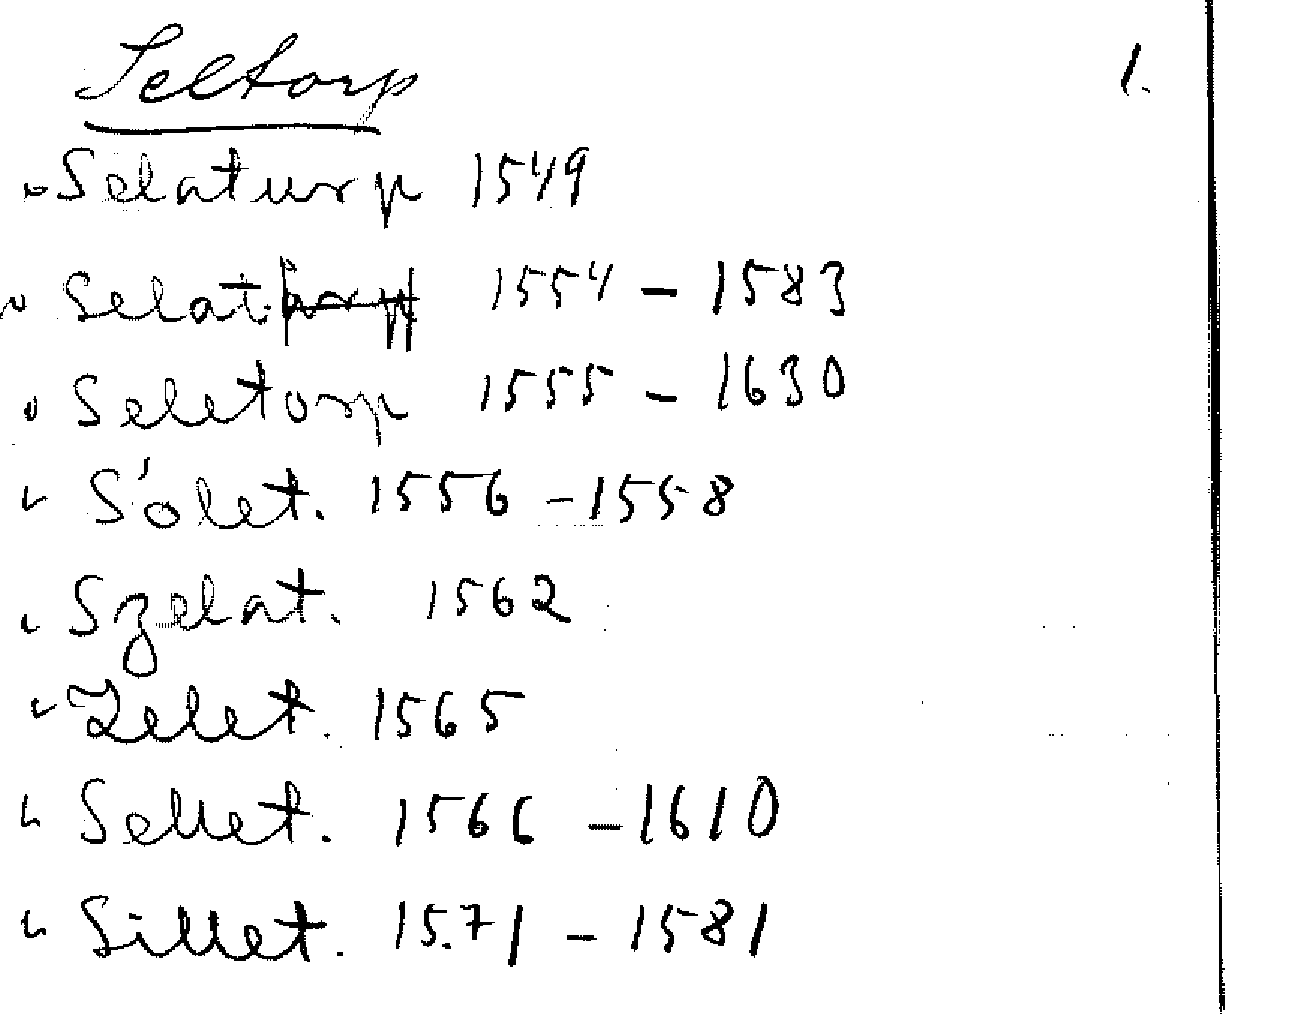 Seltorp 1.
Selaturp 1549
Selat. 1554 - 1583
Seletorp 1555 - 1630
S'olet. 1556 - 1558
Szelat. 1562
Zelet. 1565
Sellet. 1566 - 1610
Sillet. 1571 - 1581